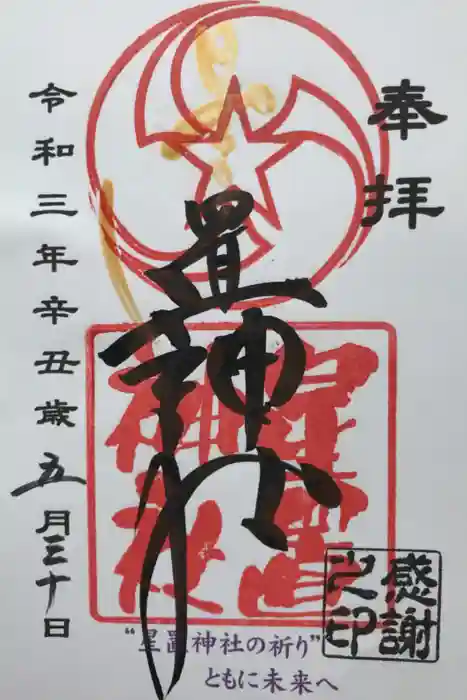 奉拝
星置神社
星置神社
令和三年辛丑歳五月三十日
感謝之印
“星置神社の祈り”
ともに未来へ